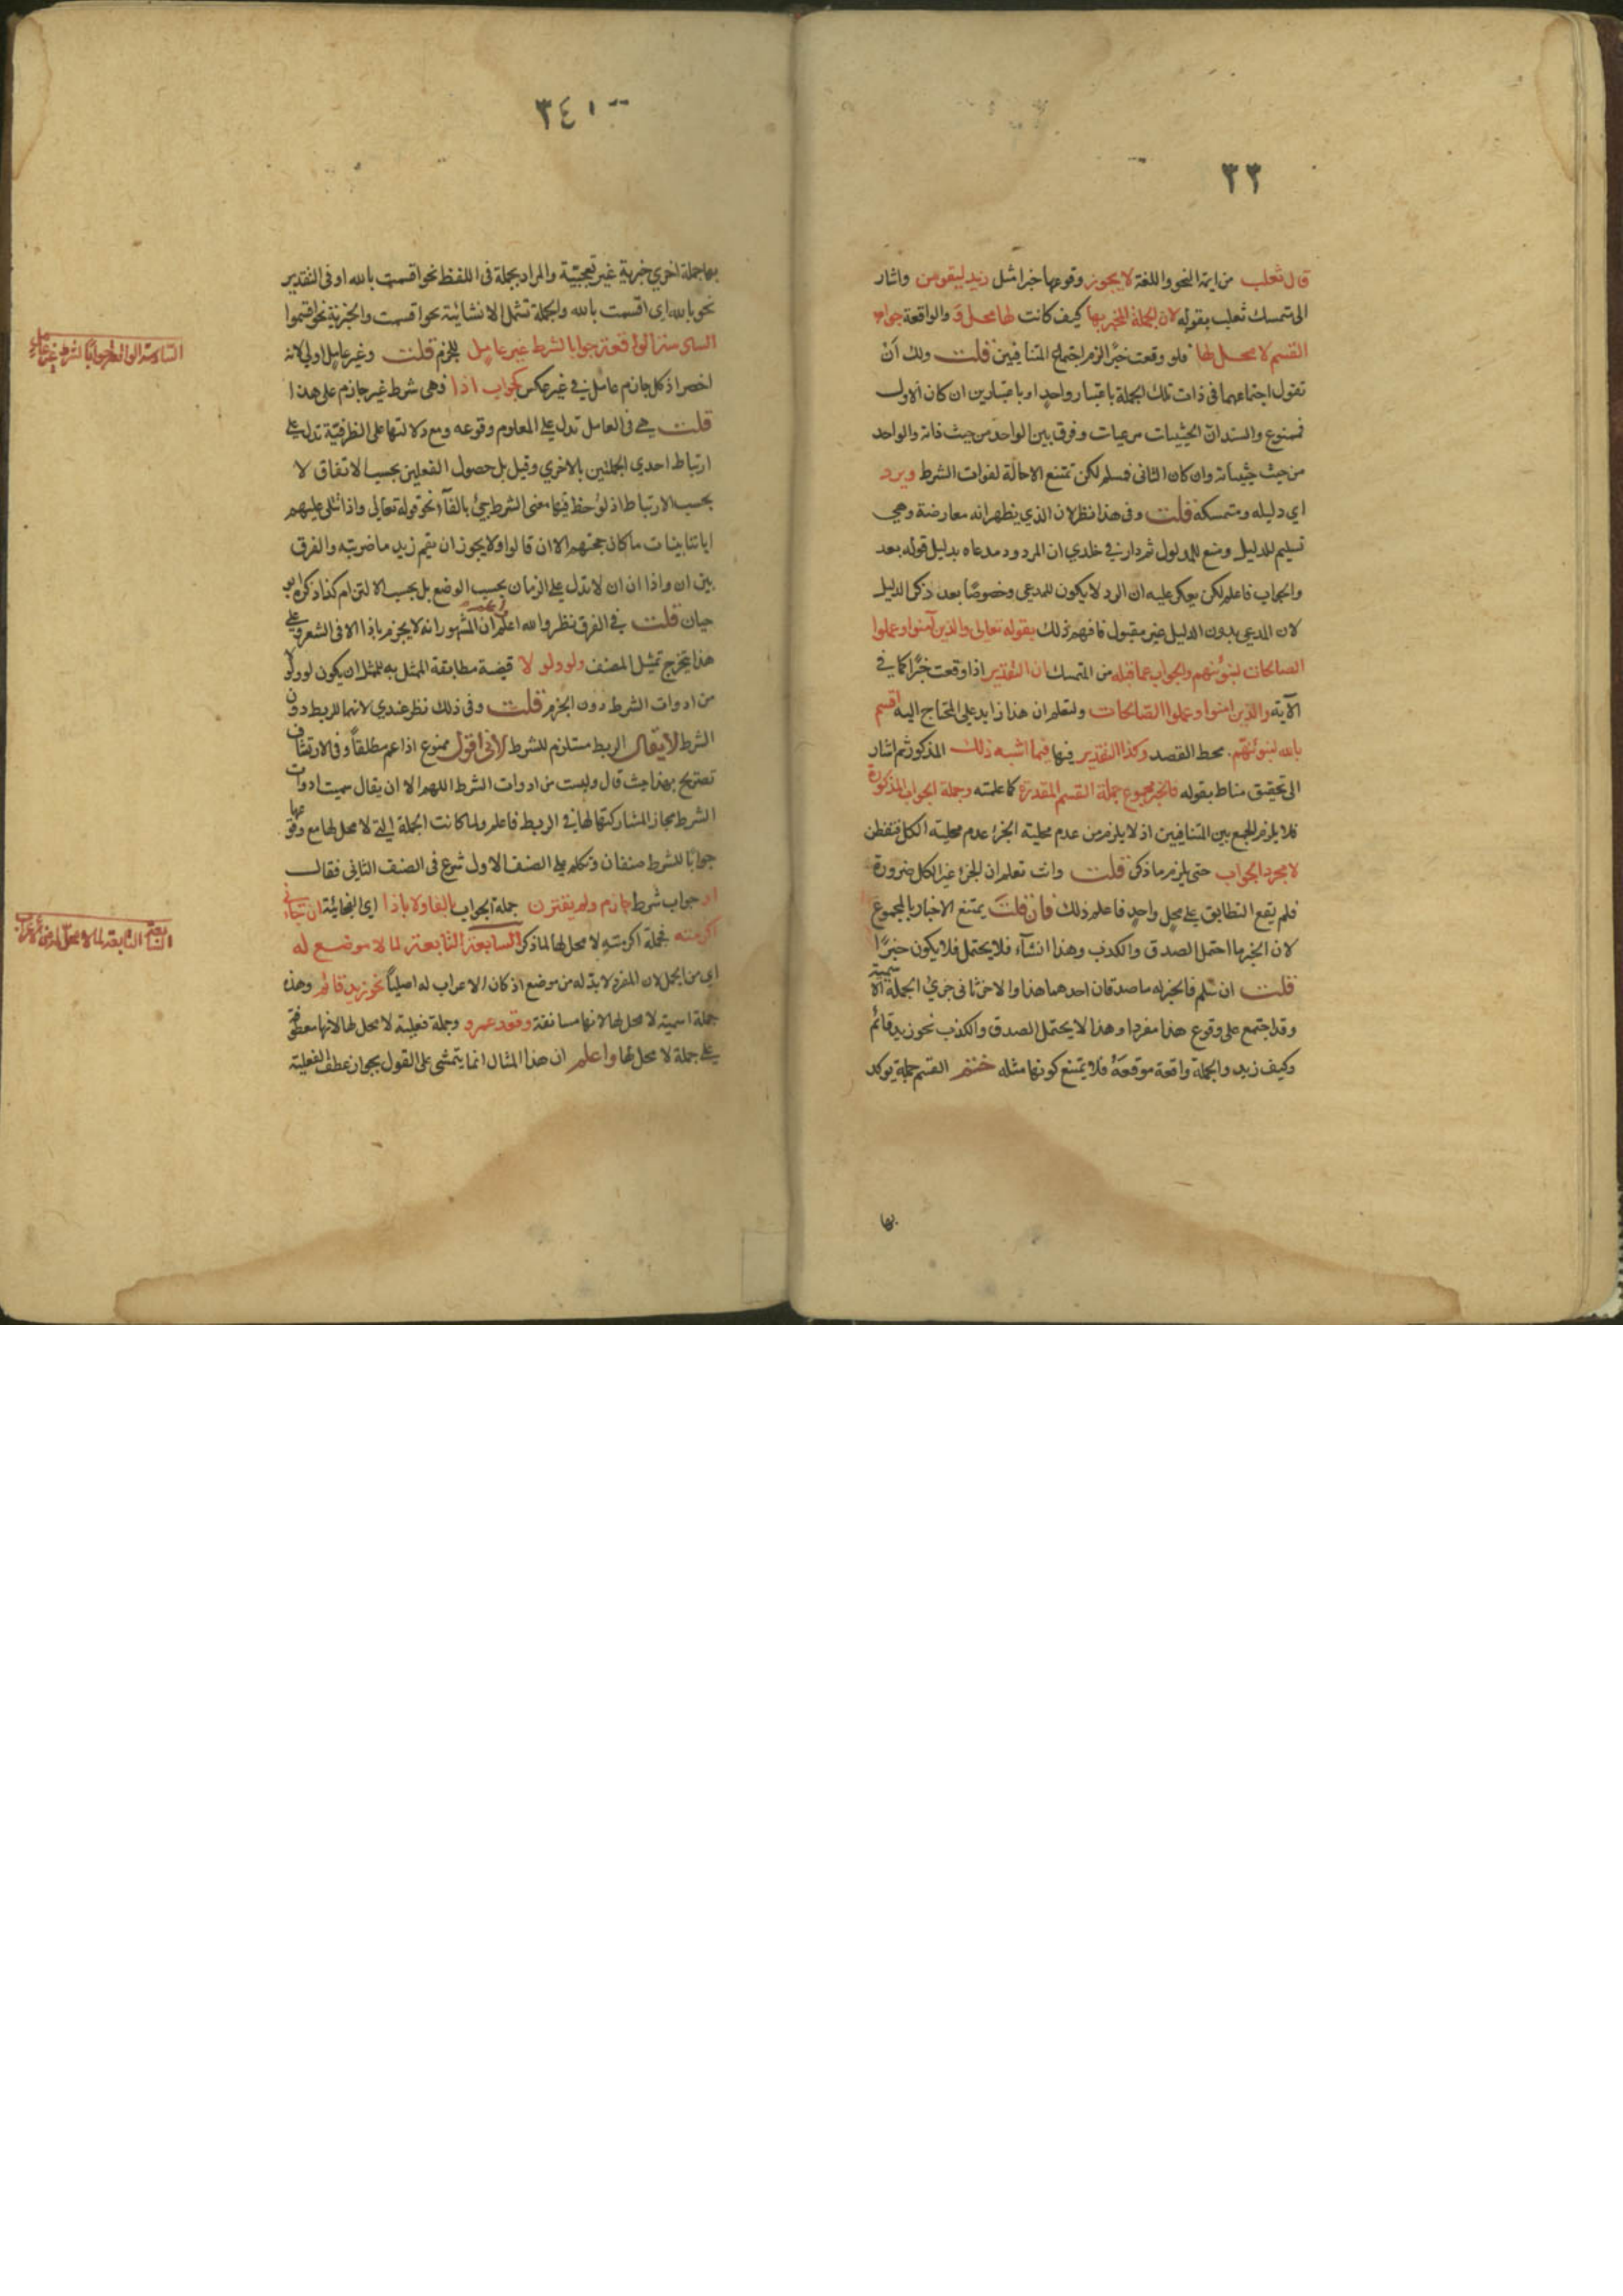 ٣٣
قال ثعلب من ايمة النحو واللغة لا يجوز وقوعها خبرا مثل زيد ليقومن واشار
الى تمسك ثعلب بقوله لان الجملة المخبر بها كيف كانت لها محل قد والواقعة جواب
القسم لا محل لها فلو وقعت خبرًا لزم اجتماع المتنافيين قلت ولك ان
تقول اجتماعهما فى ذات تلك الجملة باعتبار واحدٍ او باعتبارين ان كان الاول
فممنوع والسند ان الحيثيات مرعيات وفرق بين الواحد من حيث ذاته والواحد
من حيث حيثياته وان كان الثانى فمسلم لكن تمتنع الاحالة لفوات الشرط ويرد
اي دليله ومتمسكه قلت وفى هذا نظر لان الذي يظهر انه معارضة وهي
تسليم للدليل ومنع للمدلول ثم دار في خلدي ان المردود مدعاه بدليل قوله بعد
والجواب فاعلم لكن يعكر عليه ان الرد لا يكون للمدعى وخصوصًا بعد ذكر الدليل
لان المدعى بدون الدليل غير مقبول فافهم ذلك بقوله تعالى والذين آمنوا وعملوا
الصالحات لنبوئنهم والجواب عما قبله من التمسك ان التقدير اذا وقعت خبرًا كما في
الآية والذين امنوا وعملوا الصالحات ولتعلم ان هذا زايد على المحتاج اليه اقسم
بالله لنبوئنهم محط القصد وكذا التقدير فيها فيما اشبه ذلك المذكور ثم اشار
الى تحقيق مناط بقوله فالخبر مجموع جملة القسم المقدرة كما علمته وجملة الجواب المذكورة
فلا يلزم الجمع بين المتنافيين اذ لا يلزم من عدم محلية الجزء عدم محلية الكل فتفطن
لا مجرد الجواب حتى يلزم ما ذكر قلت وانت تعلم ان الجزء غير الكل ضرورة
فلم يقع التطابق على محل واحدٍ فاعلم ذلك فان قلت يمتنع الاخبار بالمجموع
لان الخبر ما احتمل الصدق والكذب وهذا انشاء فلا يحتمل فلا يكون خبرًا
قلت ان سُلم فالخبر له ماصدقان احدهما هذا والاخر ثانى جزئي الجملة الاسمية
وقد اجتمع على وقوع هذا مفردا وهذا لا يحتمل الصدق والكذب نحو زيد قائم
وكيف زيد والجملة واقعة موقعه فلا يمتنع كونها مثله ختم القسم جملة يوكد
بها
٣٤١
بها جملة اخري خبرية غير تعجبية والمراد بجملة فى اللفظ نحو اقسمت بالله او فى التقدير
نحو بالله اي اقسمت بالله والجملة تشمل الانشائية نحو اقسمت والخبرية نحو اقسموا
السادسة الواقعة جوابا لشرط غير عامل للجزم قلت وغير عامل اولي لانه
اخصر اذ كل جازم عامل في غير عكس كجواب اذا فهي شرط غير جازم على هذا
قلت هي فى العامل تدل على المعلوم وقوعه ومع دلالتها على الظرفية تدل على
ارتباط احدي الجملتين بالاخري وقيل بل حصول الفعلين بحسب الاتفاق لا
بحسب الارتباط اذ لو لحظ فيها معنى الشرط جئ بالفآء نحو قوله تعالى واذا تتلى عليهم
اياتنا بينات ما كان حجتهم الا ان قالوا ولا يجوز ان يقم زيد ما ضربته والفرق
بين ان واذا ان ان لا تدل على الزمان بحسب الوضع بل بحسب الالتزام كذا ذكره ابو
حيان قلت في الفرق نظر والله اعلم ان المشهور انه لا يجزم باذا الا فى الشعر وعلى
هذا يتخرج تمثيل المصنف ولو ولولا قيضة مطابقة الممثل به للمثل ان يكون لو ولولا
من ادوات الشرط دون الجزم قلت وفى ذلك نظر عندي لانها للربط دون
الشرط لا يقال الربط مستلزم للشرط لأنى اقول ممنوع اذا عم مطلقاً وفى الارتشاف
تصريح بهذا حيث قال وليست من ادوات الشرط اللهم الا ان يقال سميت ادوات
الشرط مجاز المشاركتها لها في الربط فاعلم ولما كانت الجملة التي لا محل لها مع وقوعها
جوابًا للشرط صنفان وتكلم على الصنف الاول شرع فى الصنف الثانى فقال
او جواب شرط جازم ولم يقترن جملة الجواب بالفا ولا باذا اي الفجائية ان جاءنى
اكرمته فجملة اكرمته لا محل لها لما ذكر السابعة التابعة لما لا موضع له
اي من الجمل لان المفرد لا بد له من موضع اذ كان الاعراب له اصليا نحو زيد قائم وهذه
جملة اسمية لا محل لها لانها مستانفة وقعد عمرو وجملة فعلية لا محل لها لانها معطوفة
على جملة لا محل لها واعلم ان هذا المثال انما يتمشى على القول بجواز عطف الفعلية
السادسة الواقعة جوابًا لشرط غير عامل
السابعة التابعة لما لا محل له من الاعراب